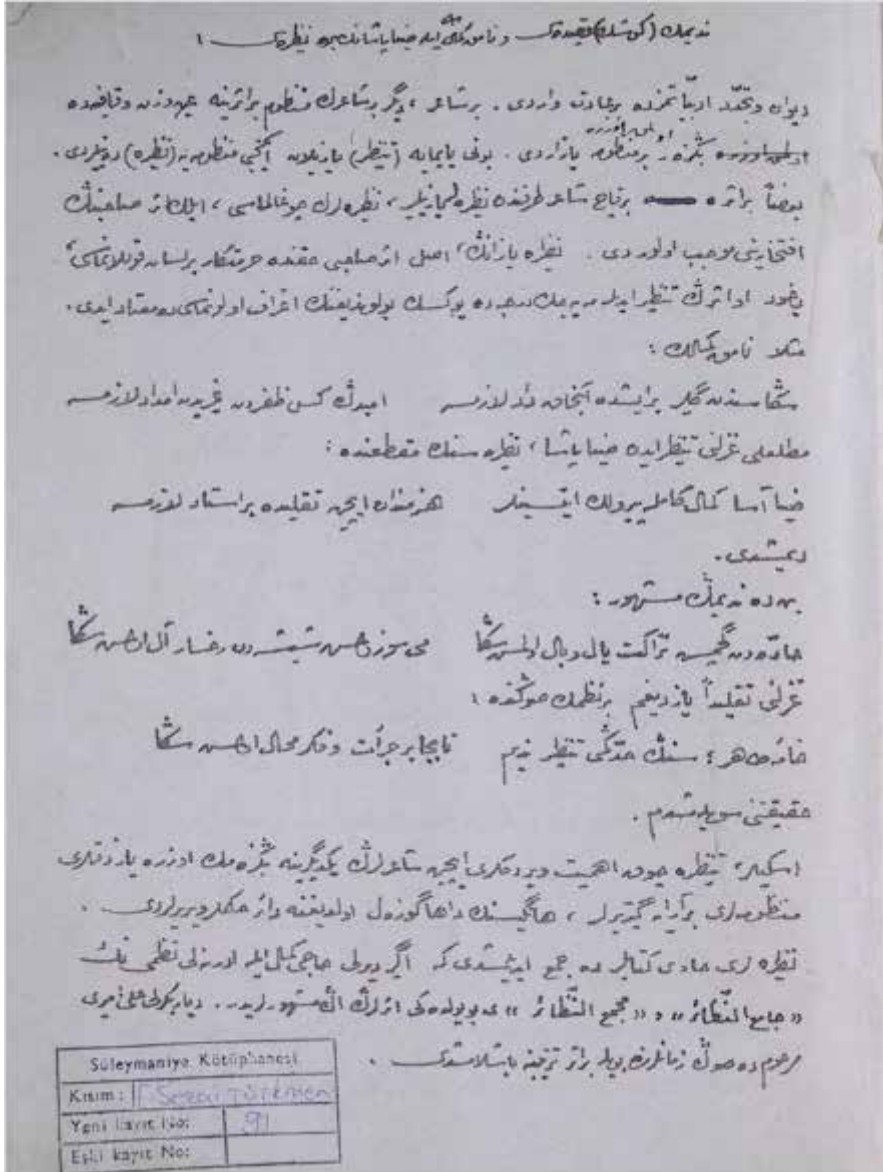 نديمك (كوشك) قصيده‌سى و نامق كمال ايله ضيا پاشانك بره نظيره‌سى :
ديوان و تجدد ادبياتمزده بر عادت واردى . بر شاعر ، ديگر بر شاعرك منظوم بر اثرينه عين وزن و قافيه‌ده
بڭزر بر منظومه يازاردى . بونى ياپمايه (تنظير) يازيلان ايكنجى منظومه‌يه (نظيره) دينيلردى .
بعضاً بر اثره برقاچ شاعر طرفندن نظيره لر يازيلير ، نظيره لرك چوغالماسى ، ايلك اثر صاحبنڭ
افتخارينى موجب اولوردى . نظيره يازانڭ ، اصل اثر صاحبى حقنده حرمتكار بر لسان قوللانماسى ،
ياخود او اثرڭ تنظير ايديله ميه جك درجه ده يوكسك بولونديغنڭ اعتراف اولونماسى ده معتاد ايدى .
مثلا نامق كمالك :
سڭا سندن گلير بر ايشده آنجاق داد لازمسه اميدڭ كس ظفردن غيريدن امداد لازمسه
مطلعلى غزلنى تنظير ايدن ضيا پاشا ، نظيره سنك مقطعنده :
ضيا آسا كمال كامله پيرولك ايتسينلر هنرمندان ايچون تقليده بر استاد لازمسه
ديمشدى .
بن ده نديمڭ مشهور :
حدّه‌دن گچمش نزاكت يال و بال اولمش سڭا مى سوزلمش شيشه‌دن رخسار آل اولمش سڭا
غزلنى تقليداً يازديغم بر نظمك صوڭنده :
خامهٔ ماهر ؛ سنڭ حدّڭمى تنظير نديم نابجا بر جرأت و فكر محال اولمش سڭا
حقيقتنى سويله‌مشدم .
اسكيلر ، تنظيره چوق اهميت ويردكلرى ايچون شاعرلرڭ يكديگرينه بڭزه‌مك اوزره يازدقلرى
منظومه‌لرى بر آرايه گتيرير ، هانگيسنك داها گوزل اولديغنه دائر حكملر ويررلردى .
نظيره لرى حاوى كتابلر ده جمع ايديلمشدى كه اگريديرلى حاجى كمال ايله ادرنه‌لى نظمى نك
« جامع النظائر » و « مجمع النظائر » ى بو يولده‌كى اثرلرڭ اڭ مشهورلريدر . دياربكرلى على اميرى
مرحوم ده صوڭ زمانلرنده بويله بر اثر ترتيبنه باشلامشدى .
Süleymaniye Kütüphanesi
Kısım: F. Sezai Türkmen
Yeni kayıt No: 91
Eski kayıt No: